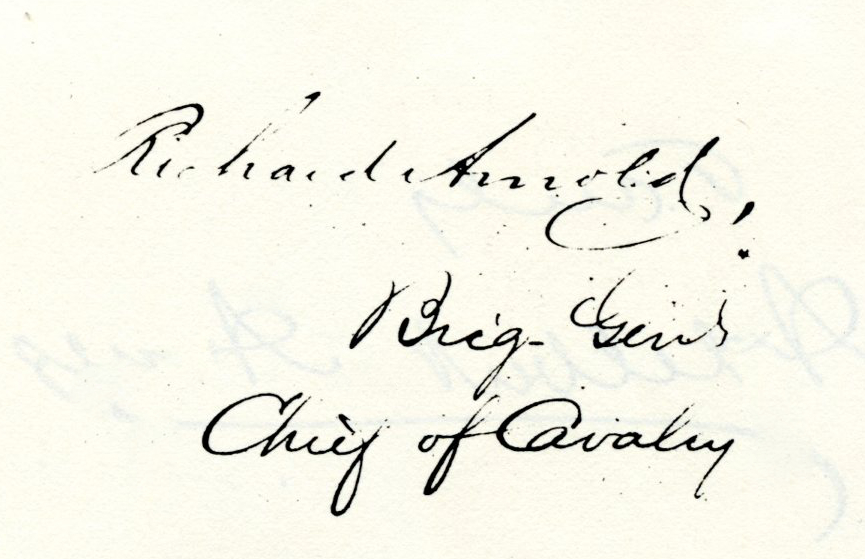 Richard Arnold
Brig-Genl
Chief of Cavalry